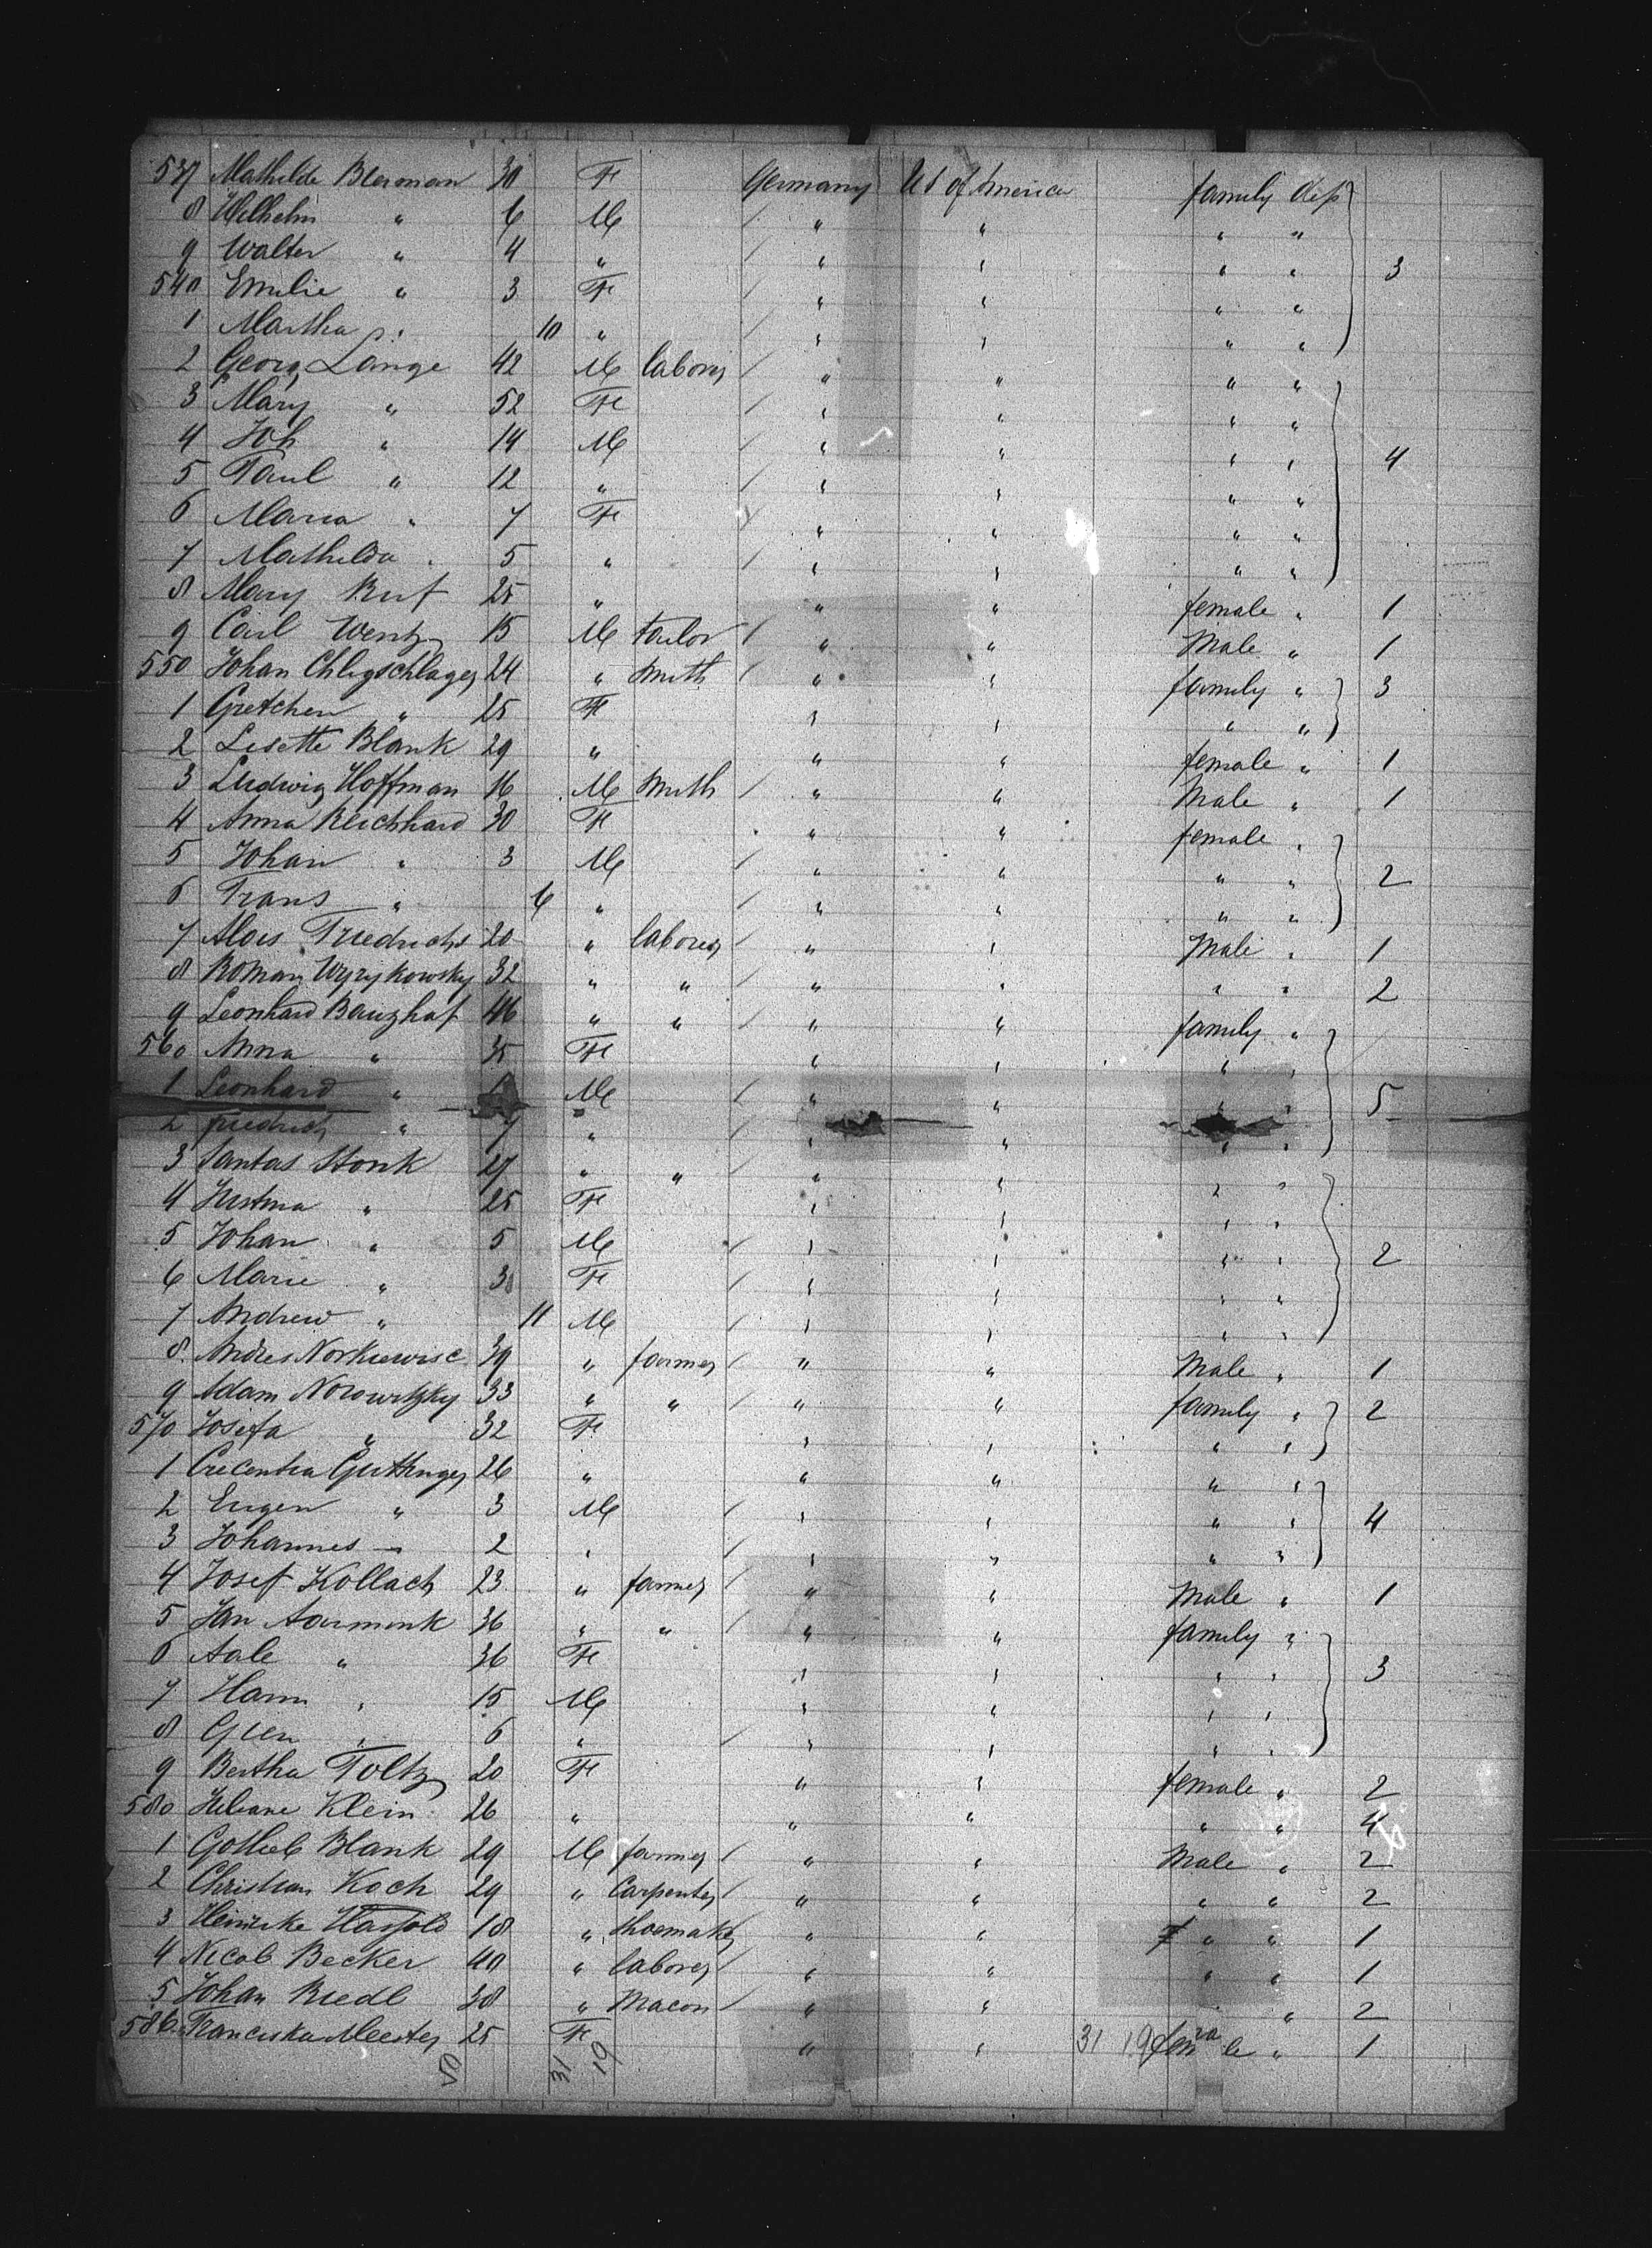 537 Mathilde Bierman 30 F Germany U S of America family dep
8 Wilhelm " 6 M " " " "
9 Walter " 4 " " " " " 3
540 Emilie " 3 F " " " "
1 Martha " 10 " " " " "
2 Georg Lange 42 M laborer " " " "
3 Mary " 52 F " " " "
4 Joh " 14 M " " " " 4
5 Paul " 12 " " " " "
6 Maria " 7 F " " " "
7 Mathilda " 5 " " " " "
8 Mary Ruf 25 " " " female " 1
9 Carl Wentz 15 M tailor " " Male " 1
550 Johan 24 " smith " " family " 3
1 Gretchen " 25 F " " " "
2 Lisette Blank 29 " " " female " 1
3 Ludwig Hoffman 16 M smith " " Male " 1
4 Anna Reichhard 30 F " " female "
5 Johan " 3 M " " " " 2
6 Frans " 6 " " " " "
7 Alois Friedrichs 20 " laborer " " Male " 1
8 Roman Wyrykowsky 32 " " " " " " 2
9 Leonhard Bauzhaf 46 " " " " family "
560 Anna " 35 F " " " "
1 Leonhard " M " " " " 5
2 Friedrich " 7 " " " " "
3 Santas Stonk 27 " " " " " "
4 Justina " 25 F " " " "
5 Johan " 5 M " " " " 2
6 Marie " 30 F " " " "
7 Andrew " 11 M " " " "
8 Andres Norkiewisc 39 " farmer " " Male " 1
9 Adam Norowitzky 33 " " " " family " 2
570 Josefa " 32 F " " " "
1 Crecentia Guthinger 26 " " " " "
2 Eugen " 3 M " " " " 4
3 Johannes " 2 " " " " "
4 Josef Kollach 23 " farmer " " Male " 1
5 Jan Aarmink 36 " " " " family "
6 Aale " 36 F " " " " 3
7 Harm " 15 M " " " "
8 " 6 " " " " "
9 Bertha Foltz 20 F " " female " 2
580 Klein 26 " " " " " 4
1 Gotlieb Blank 29 M farmer " " Male " 2
2 Christian Koch 29 " Carpenter " " " " 2
3 18 " shoemaker " " " " 1
4 Nicob Becker 40 " laborer " " " " 1
5 Johan Riedl 38 " Macon " " " 2
586 Franciska Meester 25 F " " 31 19 female " 1
31 19